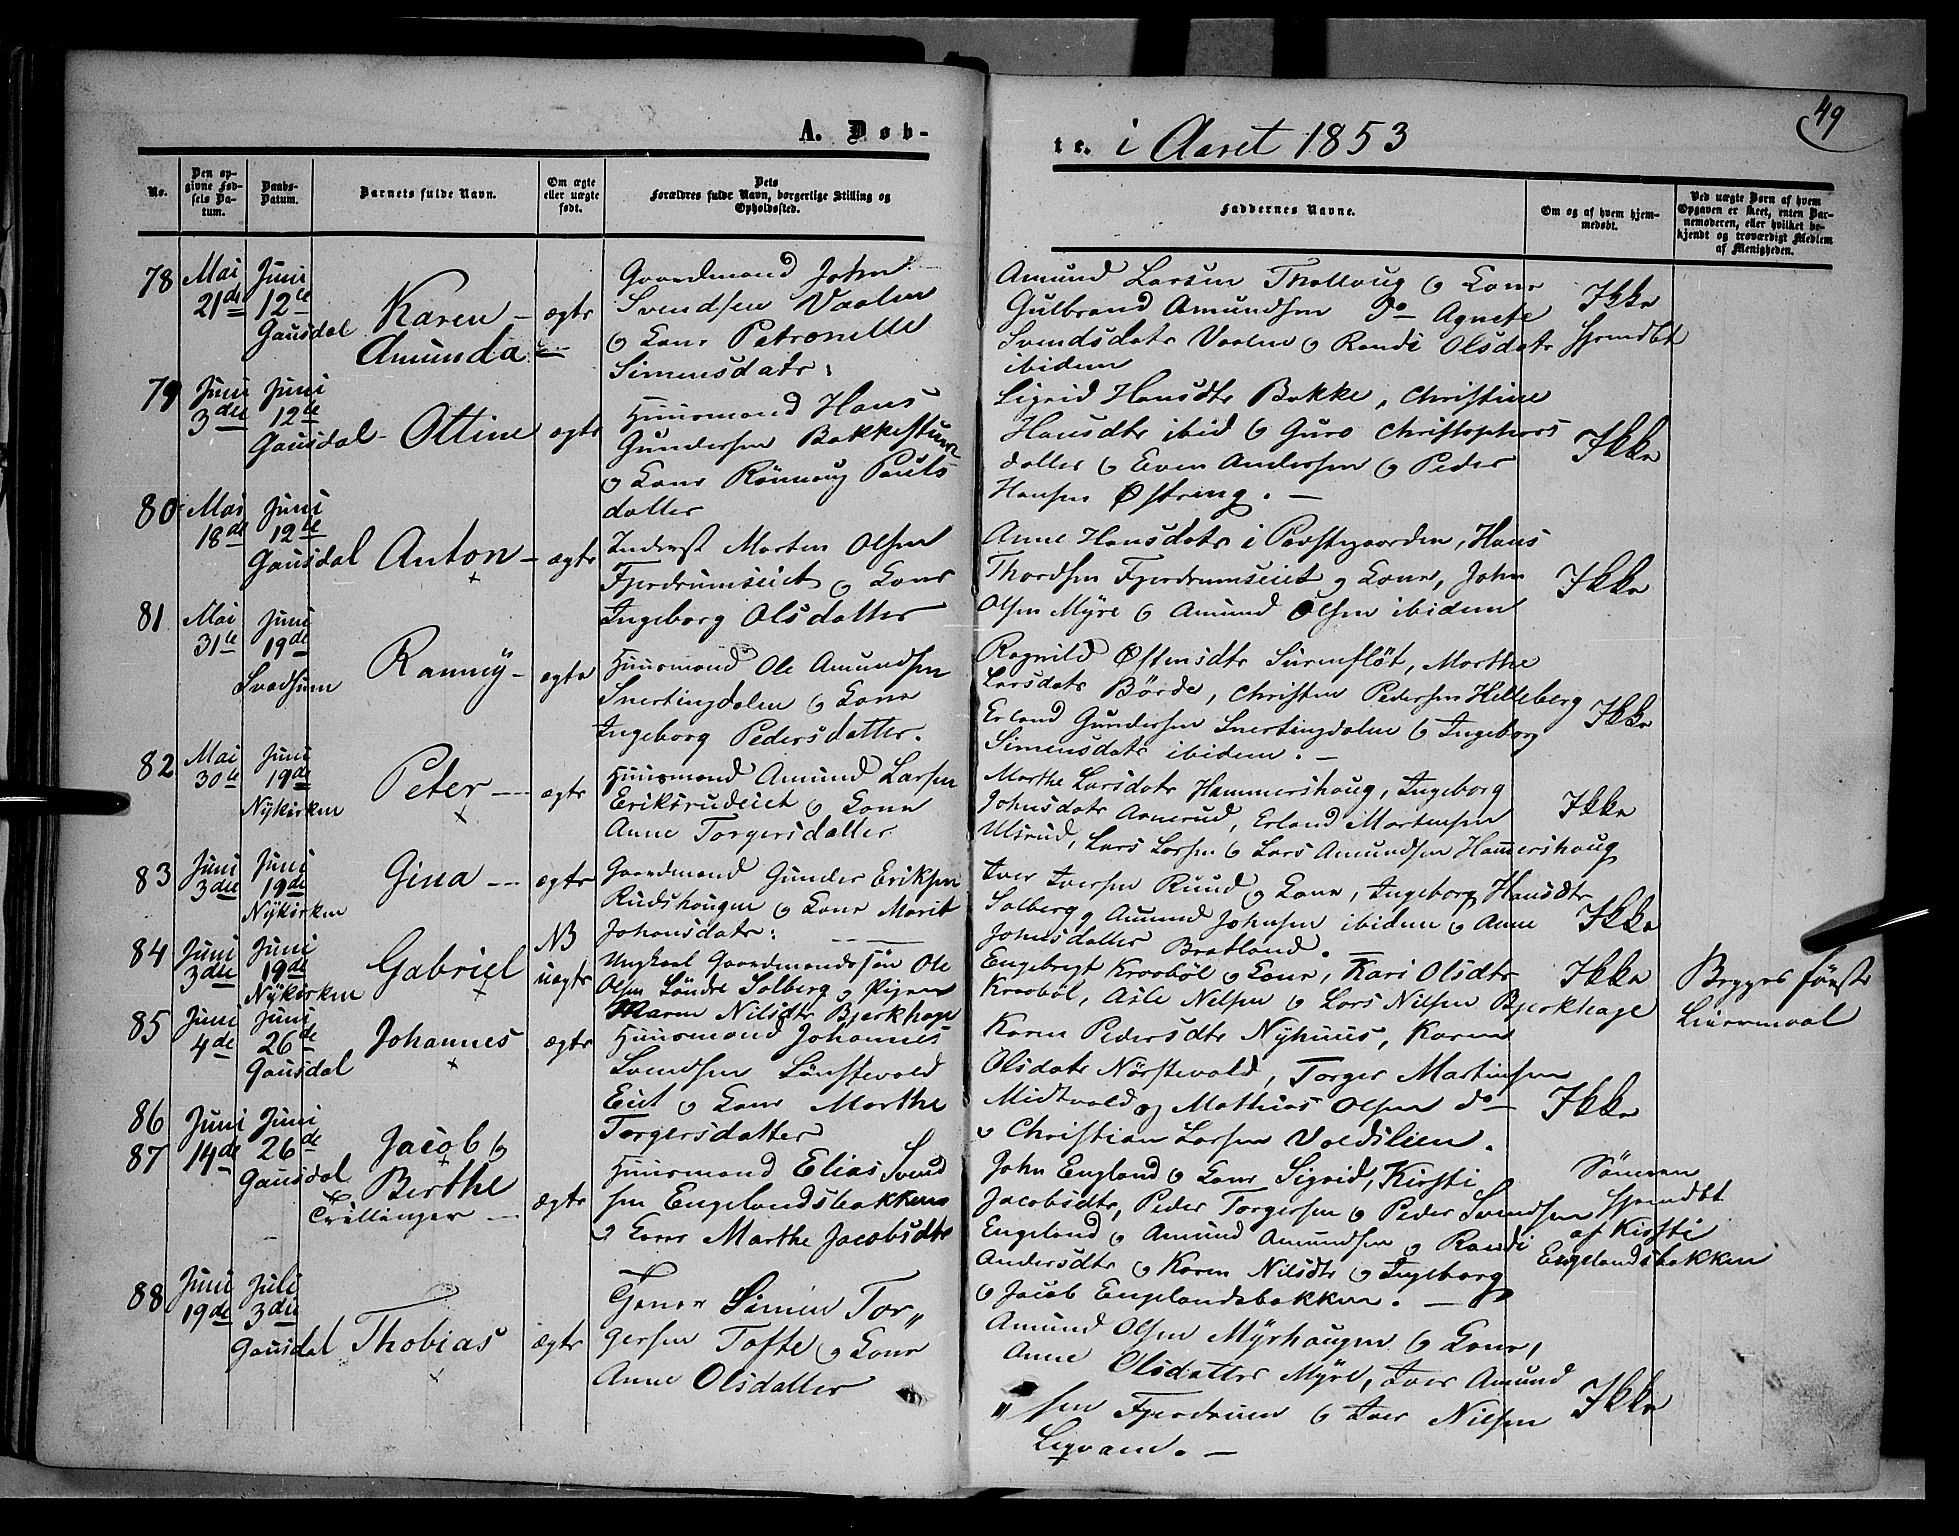 49
A. Døb-
te. i Aaret 1853
No.
Den op-
givne Fød-
sels Da-
tum.
Daabs-
Datum.
Barnets fulde Navn.
Om ægte
eller uægte
født.
Dets
Forældres fulde Navn, borgerlige Stilling og
Opholdssted.
Faddernes Navne.
Om og af hvem hjem-
medøbt.
Ved uægte Børn af hvem
Opgaven er skeet, enten Bar-
nemoderen, eller hvilket be-
kjendt og troværdigt Medlem
af Menigheden.
78
Mai
21de
Juni
12te
Gausdal
Karen
Amunda
ægte
Gaardmand John
Svendsen Vaalen
og Kone Petronelle
Simensdatr:
Amund Larsen Thollaug og Kone
Gulbrand Amundsen Do Agnete
Svendsdatr Vaalen og Randi Olsdatr
ibidem
Ikke
hjemdbt
79
Juni
3die
Juni
12te
Gausdal
Ottine
ægte
Huusmand Hans
Gundersen Bakkestuen
og Kone Rönnaug Pouls
datter
Sigrid Hansdtr Bakke, Christine
Hansdtr ibid og Guro Christophers
datter og Even Andersen og Peder
Hansen Østring.
Ikke
80
Mai
18de
Juni
12te
Gausdal
Anton
ægte
Inderst Morten Olsen
Fjerdrumseiet og Kone
Ingeborg Olsdatter
Anne Hansdatr i Præstegaarden, Hans
Thordsen Fjerdrumseiet og Kone, John
Olsen Myre og Amund Olsen ibidem
Ikke
81
Mai
31te
Juni
19de
Svadsum
Rannøy
ægte
Huusmand Ole Amundsen
Snertingdalen og Kone
Ingeborg Pedersdatter.
Ragnild Østensdtr Surenflöt, Marthe
Larsdatr Börde, Christen Pedersen Helleberg
Erland Gundersen Snertingdalen og Ingeborg
Simensdatr ibidem.
Ikke
82
Mai
30te
Juni
19de
Nykirken
Peter
ægte
Huusmand Amund Larsen
Eriksrudeiet og Kone
Anne Torgersdatter
Marthe Larsdatr Hammershaug, Ingeborg
Johnsdatr Aanerud, Erland Mortensen
Ulsrud, Lars Larsen og Lars Amundsen Hamershaug
Ikke
83
Juni
3die
Juni
19de
Nykirken
Gina
ægte
Gaardmand Gunder Eriksen
Rudshaugen og Kone Marit
Johansdatr:
Iver Iversen Ruud og Kone, Ingeborg Hansdtr
Solberg, Amund Johnsen ibidem og Anne
Johnsdatter Bratland.
Ikke
84
Juni
3die
Juni
19de
Nykirken
Gabriel
NB
uægte
Ungkarl Gaardmandssön Ole
Olsen Söndre Solberg og Pigen
Maren Nilsdtr Bjerkhage
Engebregt Kraaböl og Kone, Kari Olsdtr
Kraaböl, Asle Nilsen og Lars Nilsen Bjerkhage
Ikke
Begges förste
Leiermaal
85
Juni
4de
Juni
26de
Gausdal
Johannes
ægte
Huusmand Johannes
Svendsen Sönstevold
Eiet og Kone Marthe
Torgersdatter
Karen Pedersdtr Nyhuus, Karen
Olsdatr Nörstevold, Torger Martinsen
Midtvold og Mathias Olsen do
og Christian Larsen Voldslien.
Ikke
86
87
Juni
14de
Juni
26de
Gausdal
Jacob og
Berthe
Tvillinger
ægte
Huusmand Elias Svend
sen Engelandsbakken
og Kone Marthe Jacobsdtr
John Engeland og Kone Sigrid, Kirsti
Jacobsdtr, Peder Torgersen og Peder Svendsen
Engeland og Amund Amundsen og Randi
Andersdtr og Karen Nilsdtr og Ingeborg
og Jacob Engelandsbakken.
Sönnen
hjemdbt
af Kirsti
Engelandsbakken
88
Juni
19de
Juli
3die
Gausdal
Thobias
ægte
Simen Tor„
gersen Tofte og Kone
Anne Olsdatter
Amund Olsen Myrhaugen og Kone,
Anne Olsdatter Myre, Iver Amund
„sen Fjerdrum og Iver Nilsen
Ikke